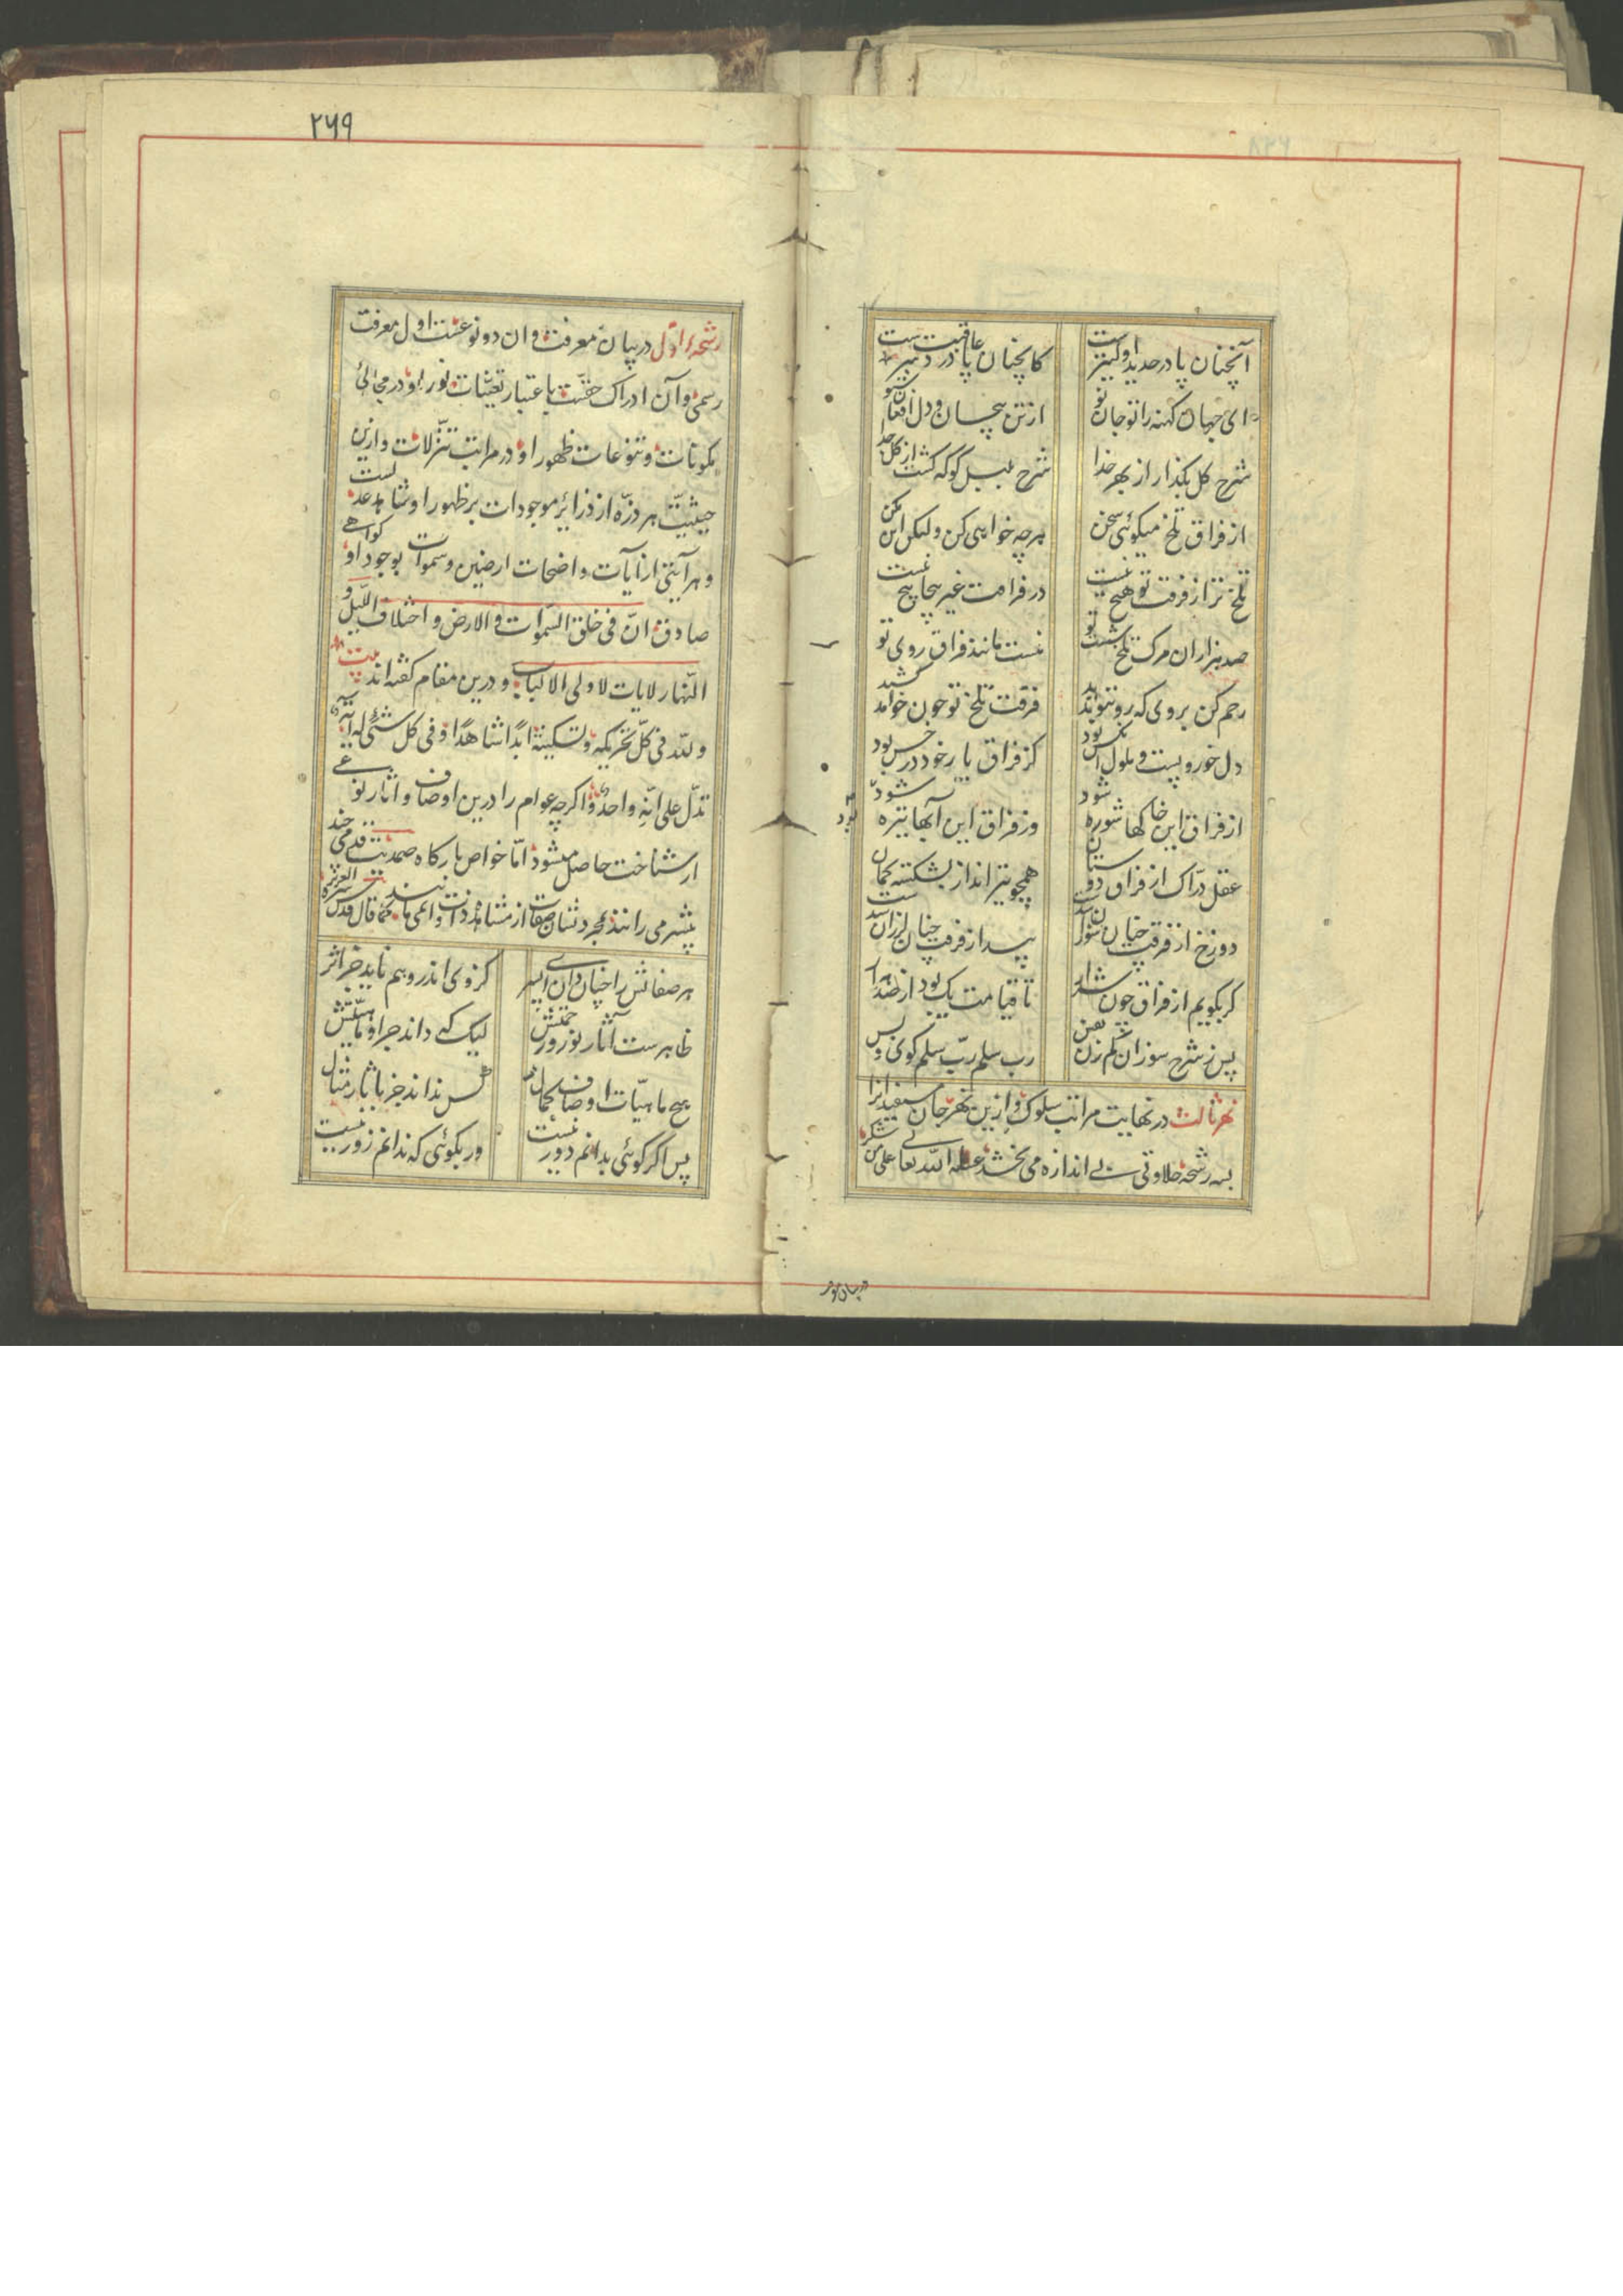 آنچنان پا در حدید اولیترست
کانچنان پا عاقبت دردسرست
ای جهان کهنه را تو جان نو
از تن بیجان و دل افغان شنو
شرح گل بگذار از بهر خدا
شرح بلبل گو که گشت از گل جدا
از فراق تلخ میگوئی سخن
هرچه خواهی کن ولیکن این مکن
تلخ تر از فرقت تو هیچ نیست
در فراقت غیر پیچاپیچ نیست
صد هزاران مرک تلخ شصت تو
نیست مانند فراق روی تو
رحم کن بر وی که روی تو بدید
فرقت تلخ تو چون خواهد کشید
دل خور و پست و ملول
کز فراق یار خود در حبس بود
از فراق این خاکها شوره شود
وز فراق این آبها تیره شود
عقل درّاک از فراق دوستان
همچو تیر انداز بشکسته کمان
دوزخ از فرقت چنان سوزان شدست
بید از فرقت چنان لرزان شدست
کر بگویم از فراق چون شرار
تا قیامت یک بود از صد هزار
پس ز شرح سوزان کم زن نفس
رب سلم ربّ سلم گوی و بس
نهر ثالث در نهایت مراتب سلوک و ازین نهر جان مستفیدانرا
بسه رشحه حلاوتی بے اندازه می بخشد
در بیان معرفت
۲۶۹
رشحهٔ اوّل در بیان معرفت و ان دو نوعست اول معرفت
رسمی و آن ادراک حقّست باعتبار تعیّنات نور او در مجالئ
مکونات و تنوعات ظهور او در مراتب تنزّلات و ازین
حیثیت هر ذرّه از ذرائر موجودات بر ظهور او شاهد عدلست
و هر آیتی از آیات واضحات ارضین و سموات بوجود او گواهے
صادق انّ فی خلق السّموات و الارض و اختلاف اللّیل و
النّهار لایات لاولی الالباب و درین مقام کفته اند بیت
و للّه فی کلّ تحریکة و تسکینة ابدًا شاهدًا و فی کل شئ له آیة
تدلّ علی انّه واحد و اکرچه عوام را درین اوصاف و اثار نوعے
از شناخت حاصل میشود امّا خواص بارکاه صمدیّت قدمی چند
پیشتر می رانند و بمجرد نشان صفات از مشاهده ذات وا نمی مانند کما قال قدس سرّه العزیز
هر صفاتش را چنان دان اے پسر
کز وی اندر وهم ناید جز اثر
ظاهرست آثار نور و رحمتش
لیک که داند جز او ماهیّتش
هیچ ماهیّات اوصاف کمال
کس نداند جز بآثار و مثال
پس اکر کوئی بدانم دور نیست
ور بکوئی که ندانم زور نیست